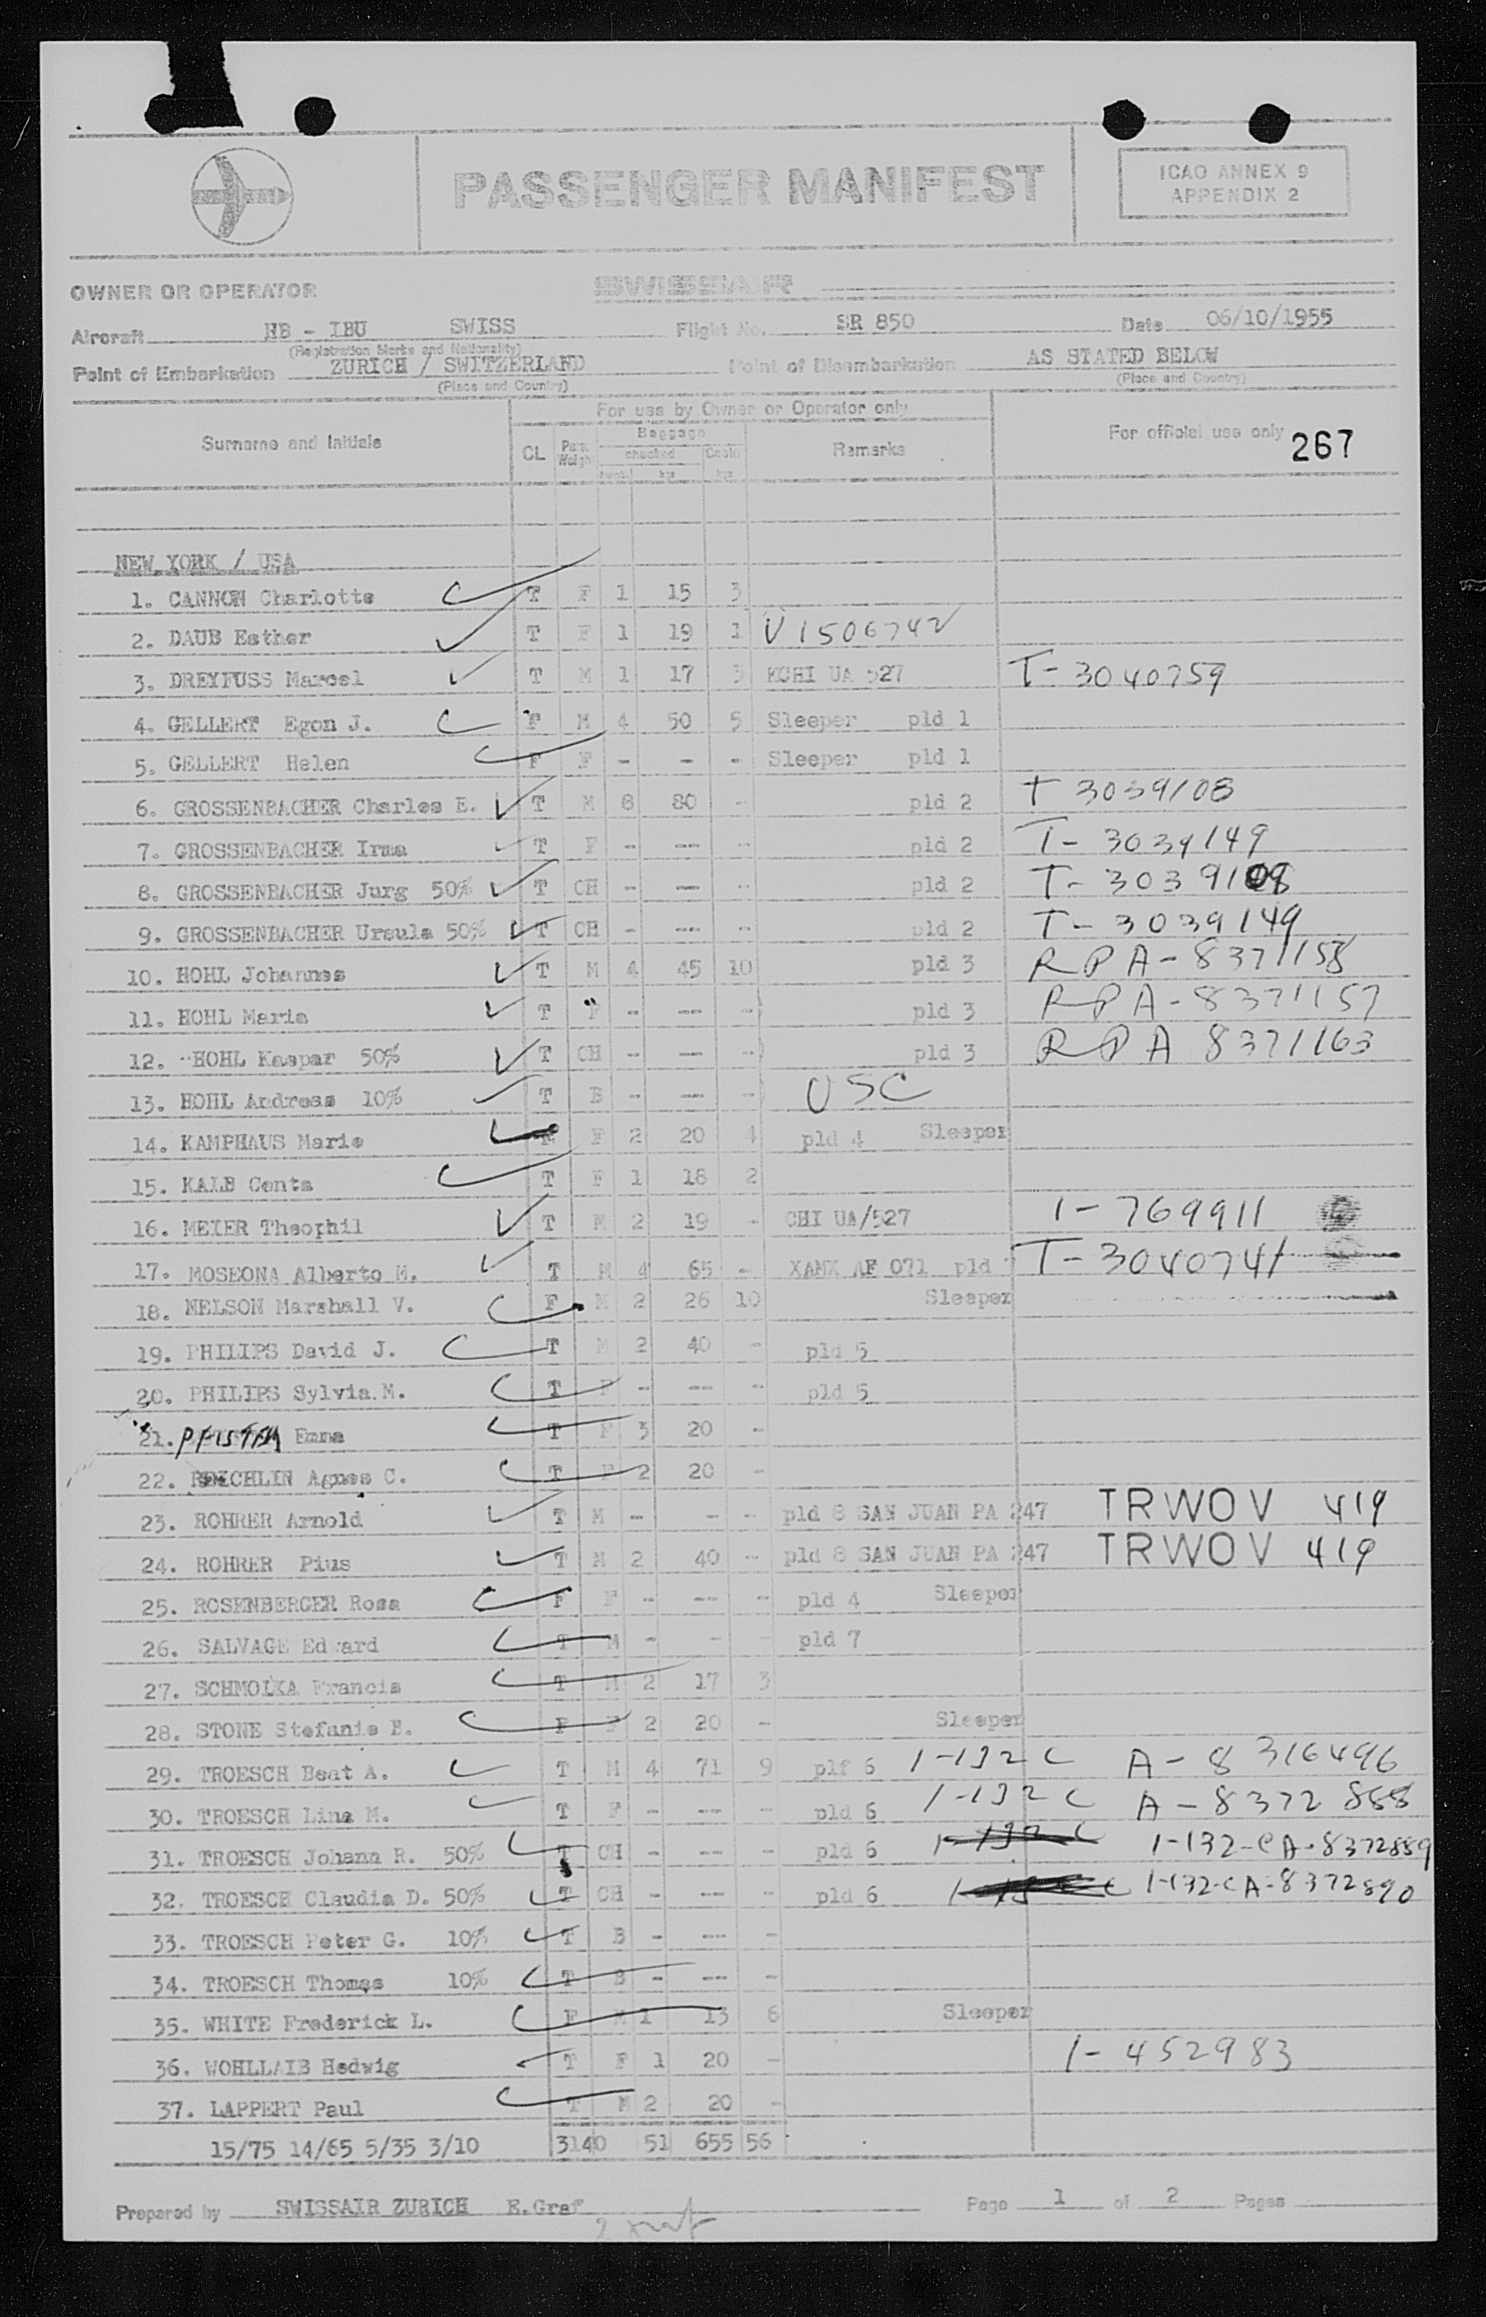 PASSENGER MANIFEST
ICAO ANNEX 9
APPENDIX 2
OWNER OR OPERATOR SWISSAIR
Aircraft HB - IBU SWISS Flight No. SR 850 Date 06/10/1955
(Registration Marks and Nationality)
Point of Embarkation ZURICH / SWITZERLAND Point of Disembarkation AS STATED BELOW
(Place and Country) (Place and Country)
For use by Owner or Operator only
Surname and Initials CL Pass. Weight Baggage checked kgs Cabin kgs Remarks For official use only 267
NEW YORK / USA
1. CANNON Charlotte T F 1 15 3
2. DAUB Esther T F 1 19 1 V1506742
3. DREYFUSS Marcel T M 1 17 3 KCHI UA 527 T-3040759
4. GELLERT Egon J. F M 4 50 5 Sleeper pld 1
5. GELLERT Helen F F - - - Sleeper pld 1
6. GROSSENBACHER Charles E. T M 8 80 - pld 2 T 3039108
7. GROSSENBACHER Irma T F - --- -- pld 2 T-3039149
8. GROSSENBACHER Jurg 50% T CH - --- -- pld 2 T-3039108
9. GROSSENBACHER Ursula 50% T CH - --- -- pld 2 T-3039149
10. HOHL Johannes T M 4 45 10 pld 3 RPA-8371158
11. HOHL Maria T F -- --- -- pld 3 RPA-8371157
12. HOHL Kaspar 50% T CH -- --- -- pld 3 RPA 8371163
13. HOHL Andreas 10% T B -- --- -- USC
14. KAMPHAUS Marie F 2 20 4 pld 4 Sleeper
15. KALB Centa T F 1 18 2
16. MEIER Theophil T M 2 19 - CHI UA/527 1-769911
17. MOSEONA Alberto M. T M 4 65 - XAMX AF 071 pld T-3040741
18. NELSON Marshall V. F M 2 26 10 Sleeper
19. PHILIPS David J. T M 2 40 - pld 5
20. PHILIPS Sylvia M. T F - --- -- pld 5
21. PFISTER Emma T F 3 20 -
22. REICHLIN Agnes C. T F 2 20 -
23. ROHRER Arnold T M -- -- -- pld 8 SAN JUAN PA 247 TRWOV 419
24. ROHRER Pius T M 2 40 -- pld 8 SAN JUAN PA 247 TRWOV 419
25. ROSENBERGER Rosa F F -- --- -- pld 4 Sleeper
26. SALVAGE Edward T M - - - pld 7
27. SCHMOLKA Francis T M 2 17 3
28. STONE Stefanie E. F F 2 20 - Sleeper
29. TROESCH Beat A. T M 4 71 9 plf 6 1-132 C A-8316496
30. TROESCH Lina M. T F - --- - pld 6 1-132 C A-8372888
31. TROESCH Johann R. 50% T CH - --- - pld 6 1-132 C 1-132-C A-8372889
32. TROESCH Claudia D. 50% T CH - --- - pld 6 1-132-C A-8372890
33. TROESCH Peter G. 10% T B - --- -
34. TROESCH Thomas 10% T B - --- -
35. WHITE Frederick L. F M 1 13 6 Sleeper
36. WOHLLAIB Hedwig T F 1 20 - 1-452983
37. LAPPERT Paul T M 2 20 -
15/75 14/65 5/35 3/10 3140 51 655 56
Prepared by SWISSAIR ZURICH E.Graf Page 1 of 2 Pages